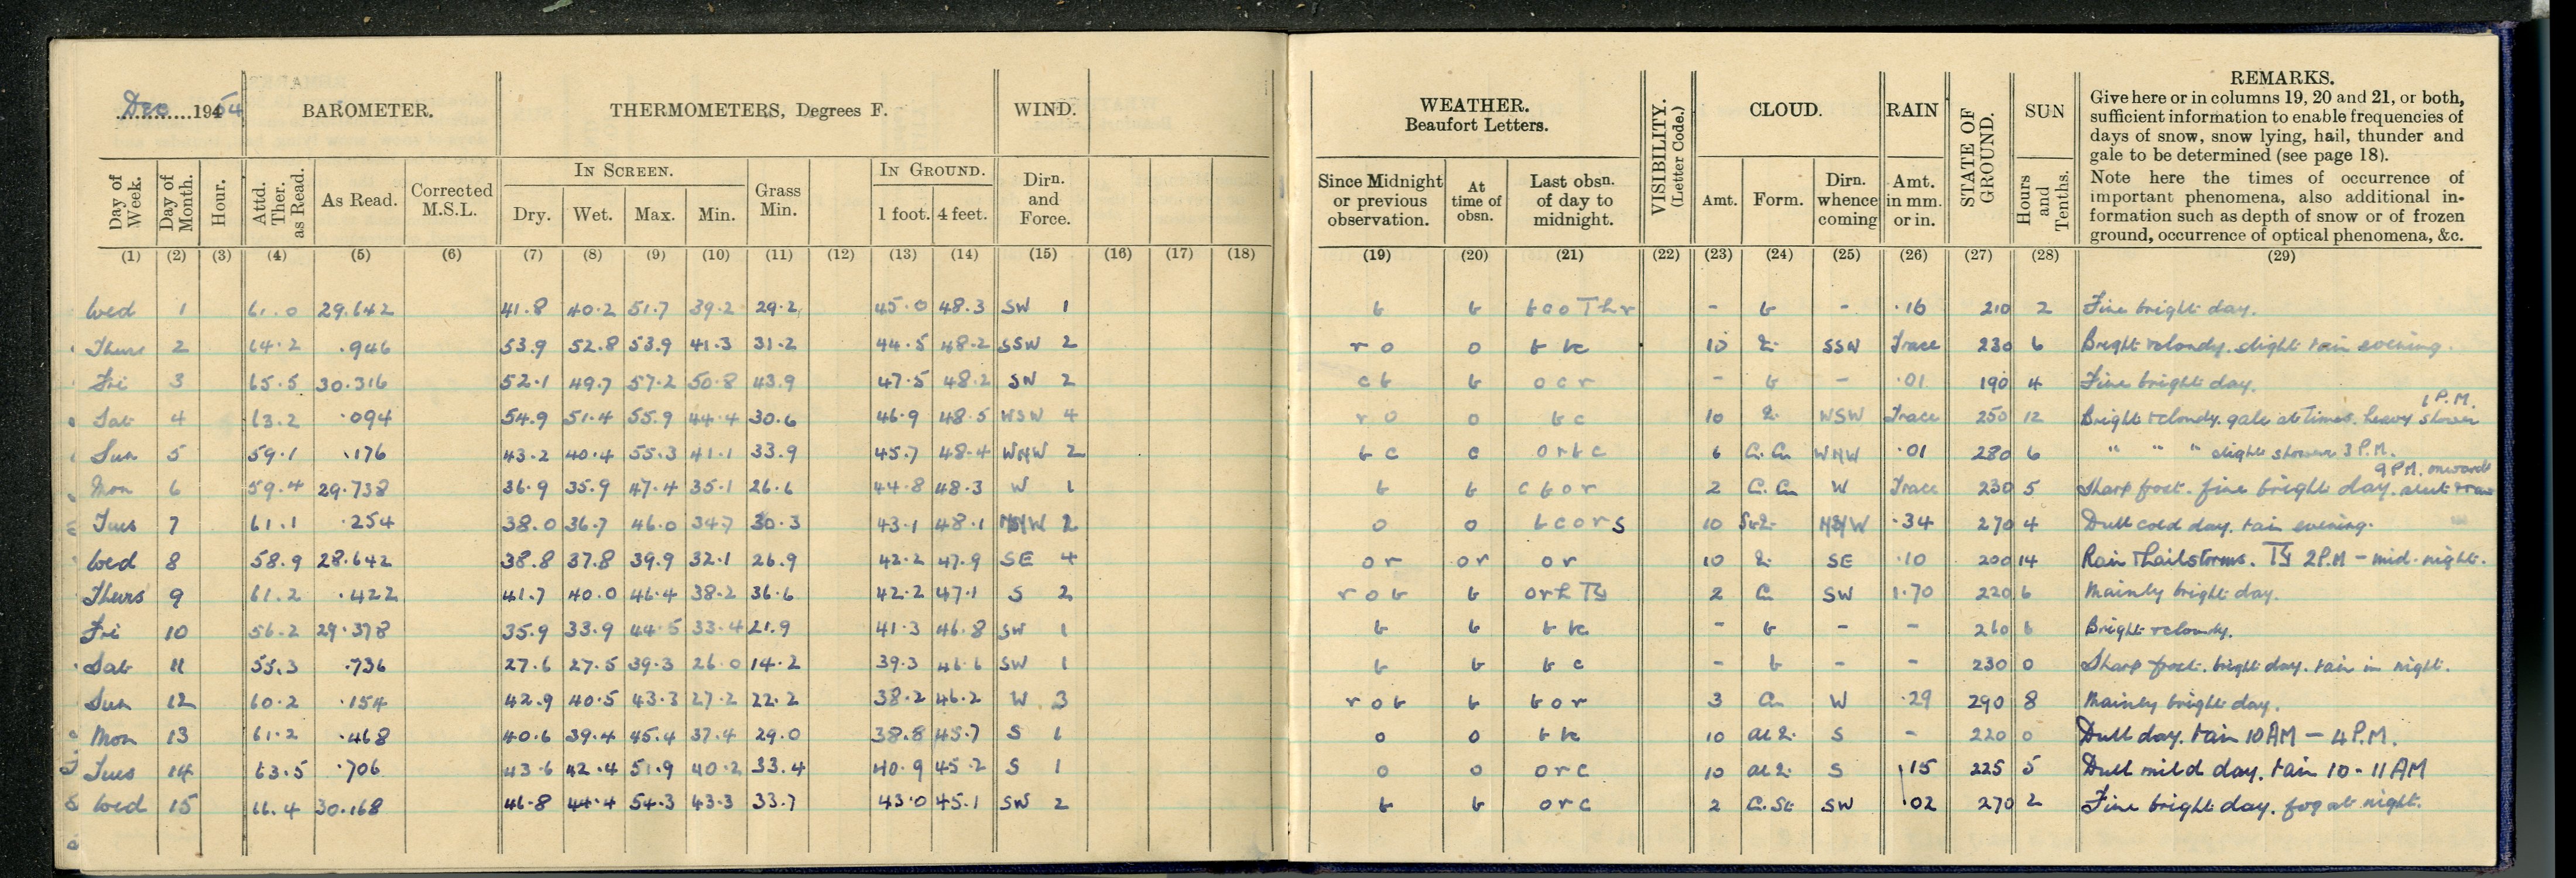 Dec 1954 BAROMETER. THERMOMETERS, Degrees F. WIND. WEATHER. Beaufort Letters. VISIBILITY. (Letter Code.) CLOUD. RAIN STATE OF GROUND. SUN REMARKS.
Give here or in columns 19, 20 and 21, or both,
sufficient information to enable frequencies of
days of snow, snow lying, hail, thunder and
gale to be determined (see page 18).
Note here the times of occurrence of
important phenomena, also additional in-
formation such as depth of snow or of frozen
ground, occurrence of optical phenomena, &c.
IN SCREEN. IN GROUND.
Day of Week. Day of Month. Hour. Attd. Ther. as Read. As Read. Corrected M.S.L. Dry. Wet. Max. Min. Grass Min. 1 foot. 4 feet. Dirn. and Force. Since Midnight or previous observation. At time of obsn. Last obsn. of day to midnight. Amt. Form. Dirn. whence coming Amt. in mm. or in. Hours and Tenths.
(1) (2) (3) (4) (5) (6) (7) (8) (9) (10) (11) (12) (13) (14) (15) (16) (17) (18) (19) (20) (21) (22) (23) (24) (25) (26) (27) (28) (29)
Wed 1 61.0 29.642 41.8 40.2 51.7 39.2 29.2 45.0 48.3 SW 1 b b b c o T h r - b - .16 210 2 Fine bright day.
Thurs 2 64.2 .946 53.9 52.8 53.9 41.3 31.2 44.5 48.2 SSW 2 r o o b bc 10 SSW Trace 230 6 Bright & cloudy. slight rain evening.
Fri 3 65.5 30.316 52.1 49.7 57.2 50.8 43.9 47.5 48.2 SW 2 c b b o c r - b - .01 190 4 Fine bright day.
Sat 4 63.2 .094 54.9 51.4 55.9 44.4 30.6 46.9 48.5 WSW 4 r o o b c 10 WSW Trace 250 12 Bright & cloudy. gale at times. heavy shower 1 P.M.
Sun 5 59.1 .176 43.2 40.4 55.3 41.1 33.9 45.7 48.4 WNW 2 b c c o r b c 6 C. Cu WNW .01 280 6 " " " slight shower 3 P.M.
Mon 6 59.4 29.738 36.9 35.9 47.4 35.1 26.6 44.8 48.3 W 1 b b c b o r 2 C. Cu W Trace 230 5 Sharp frost. fine bright day. 9 P.M. onwards
Tues 7 61.1 .254 38.0 36.7 46.0 34.7 30.3 43.1 48.1 2 o o b c o r s 10 .34 270 4 Dull cold day. rain evening.
Wed 8 58.9 28.642 38.8 37.8 39.9 32.1 26.9 42.2 47.9 SE 4 o r o r o r 10 SE .10 200 14 Rain & hailstorms. 2 P.M - mid-night.
Thurs 9 61.2 .422 41.7 40.0 46.4 38.2 36.6 42.2 47.1 S 2 r o b b o r h 2 Cu SW 1.70 220 6 Mainly bright day.
Fri 10 56.2 29.378 35.9 33.9 44.5 33.4 21.9 41.3 46.8 SW 1 b b b bc - b - - 260 6 Bright & cloudy.
Sat 11 55.3 .736 27.6 27.5 39.3 26.0 14.2 39.3 46.6 SW 1 b b b c - b - - 230 0 Sharp frost. bright day. rain in night.
Sun 12 60.2 .154 42.9 40.5 43.3 27.2 22.2 38.2 46.2 W 3 r o b b b o r 3 Cu W .29 290 8 Mainly bright day.
Mon 13 61.2 .468 40.6 39.4 45.4 37.4 29.0 38.8 45.7 S 1 o o b bc 10 S - 220 0 Dull day. rain 10 AM - 4 P.M.
Tues 14 63.5 .706 43.6 42.4 51.9 40.2 33.4 40.9 45.2 S 1 o o o r c 10 S .15 225 5 Dull mild day. rain 10 - 11 AM
Wed 15 66.4 30.168 46.8 44.4 54.3 43.3 33.7 43.0 45.1 SW 2 b b o r c 2 C. St SW .02 270 2 Fine bright day. fog at night.